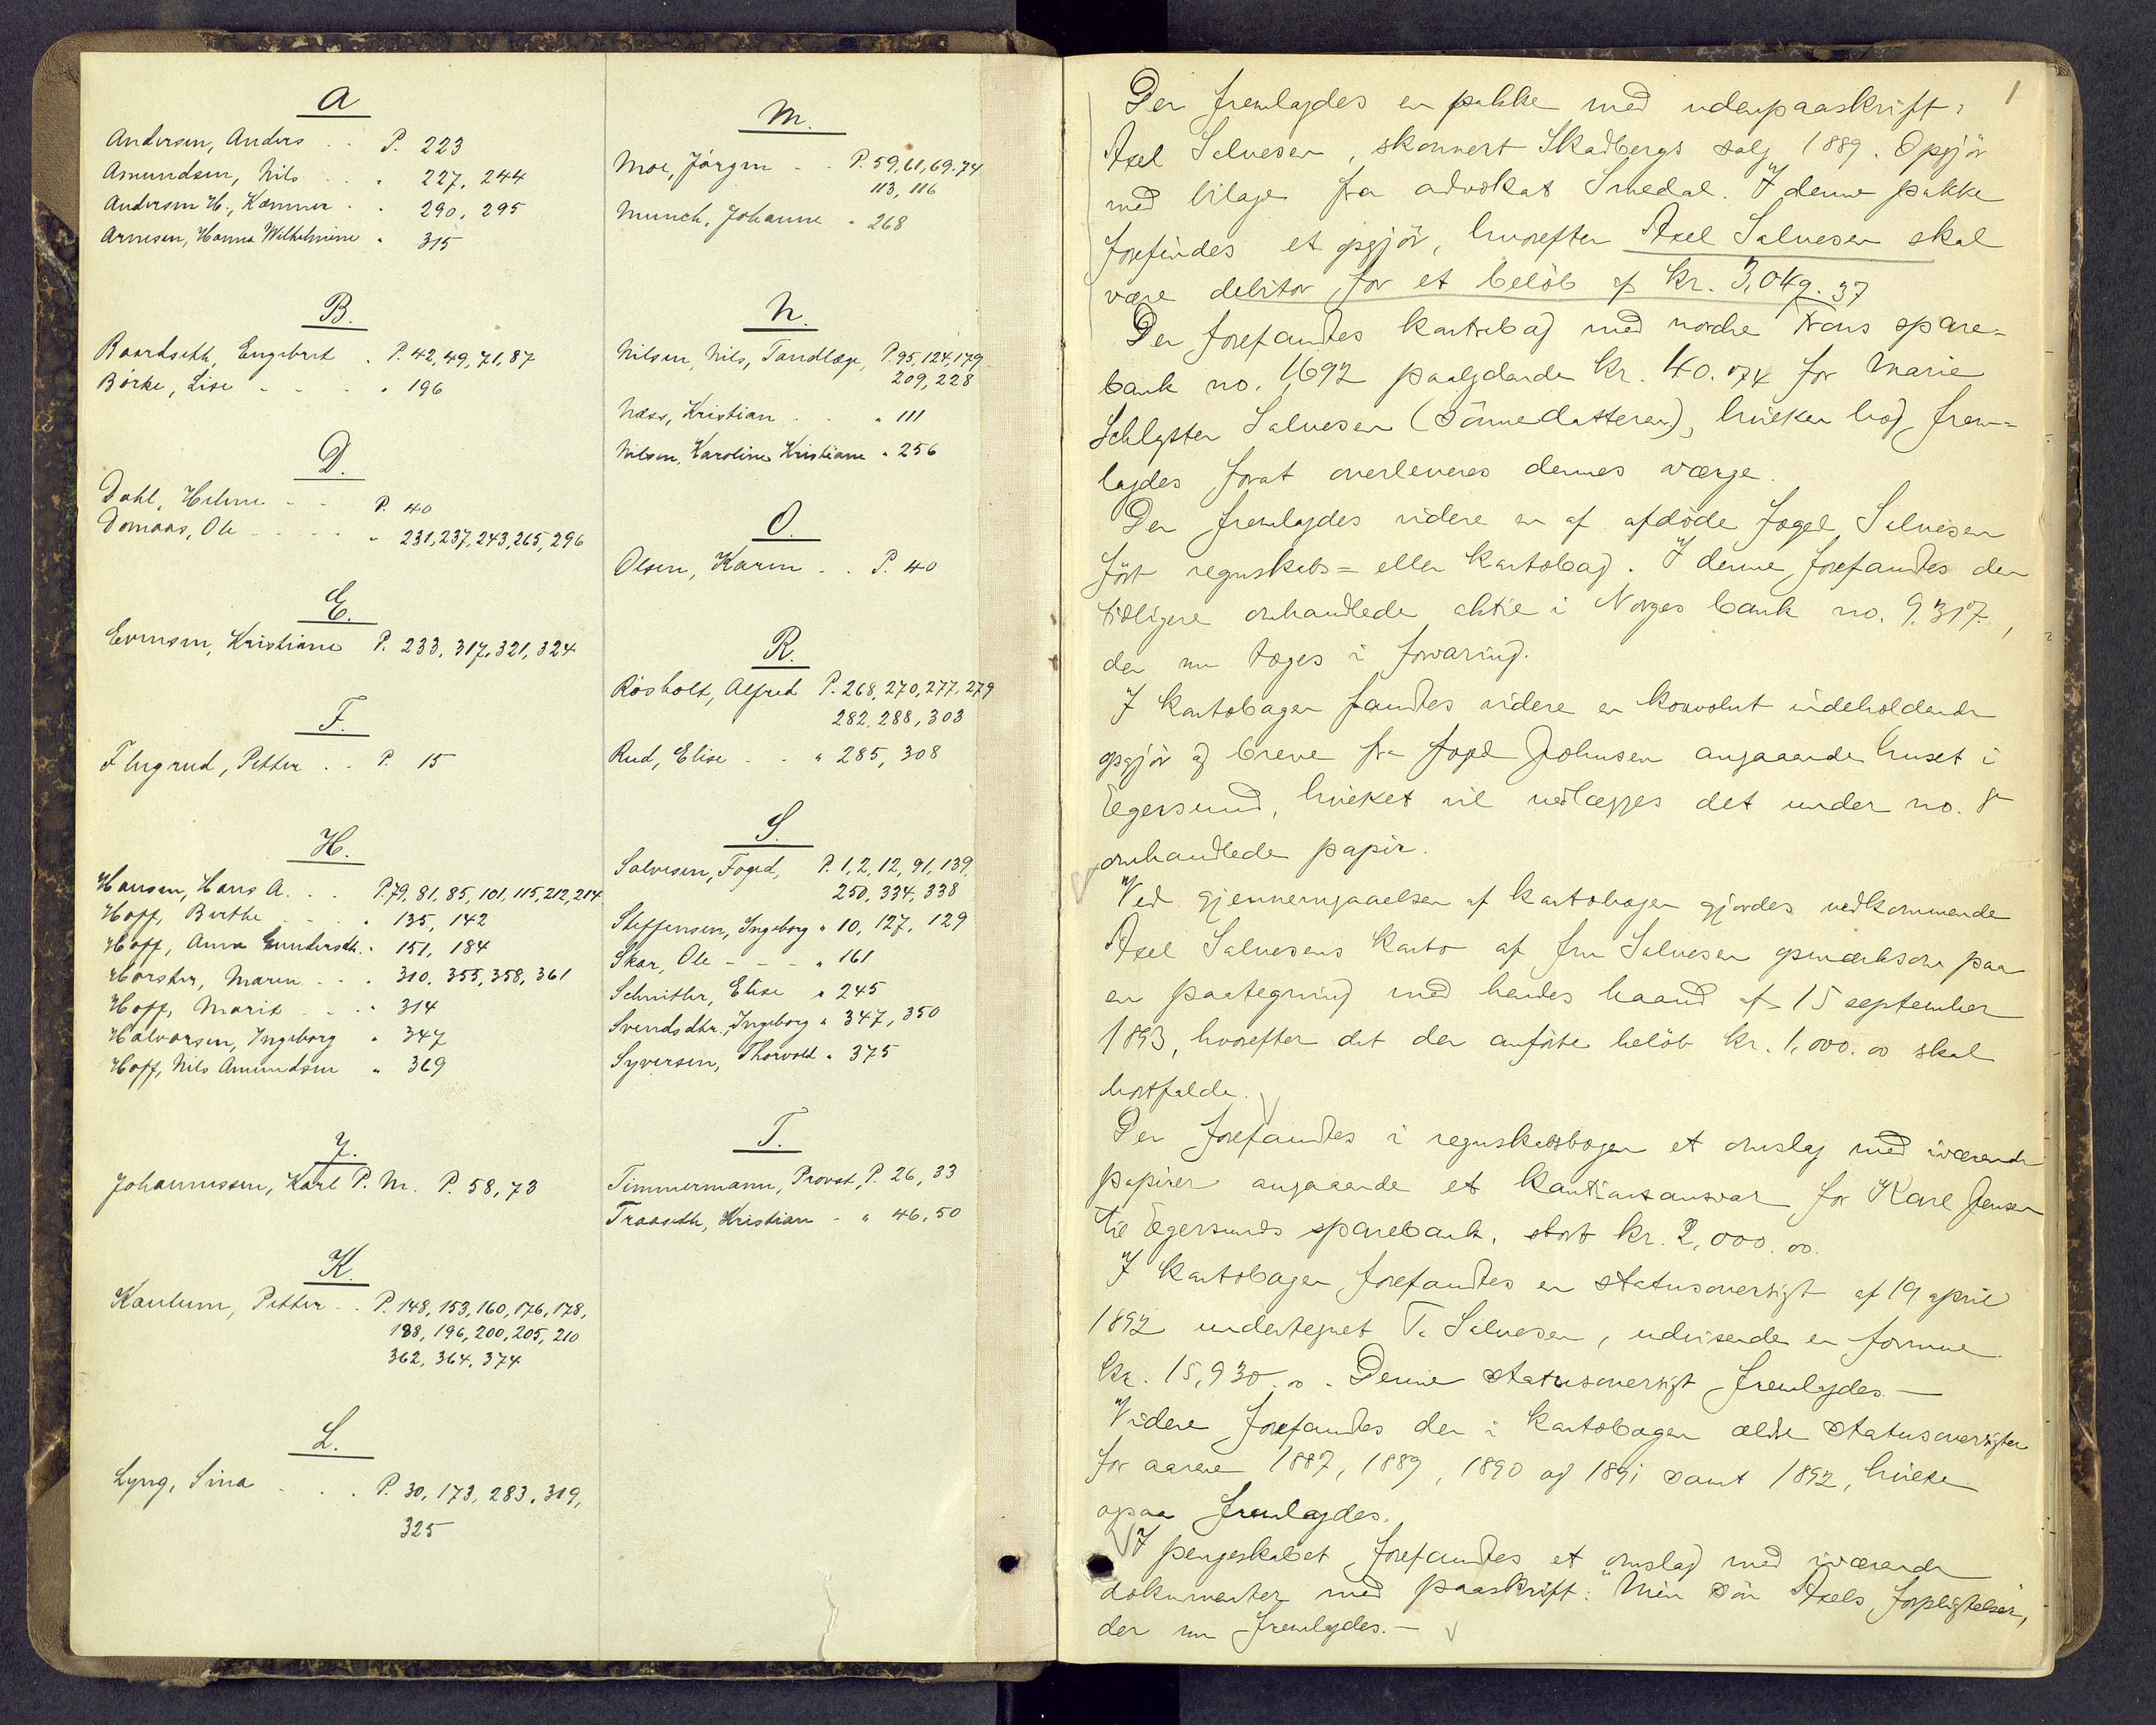 A
Andersen, Anders . . P. 223
Amundsen, Nils . . . 227, 244
Andersen H., Kæmner . . 290, 295
Arnesen, Hanna Wilhelmine " 315
B.
Baardseth, Engebret . P. 42, 49, 71, 87
Börke, Lise - - - " 196
D.
Dahl, Helene - - P. 40
Domaas, Ole - - - - " 231, 237, 243, 265, 296
E.
Evensen, Kristiane P. 233, 317, 321, 324
F.
Flugrud, Petter . . P. 15
H.
Hansen, Hans A. . . P. 79, 81, 85, 101, 115, 212, 214
Hoff, Berthe - - - " 135, 142
Hoff, Anna Gundersdt. " 151, 184
Horster, Maren . . . 310, 355, 358, 361
Hoff, Marit . . " 314
Halvorsen, Ingeborg " 347
Hoff, Nils Amundsen " 369
J.
Johannessen, Karl P. M. P. 58, 73
K.
Kaulum, Petter . . P. 148, 153, 160, 176, 178,
188, 196, 200, 205, 210
362, 364, 374
L.
Lyng, Sina . . . P. 30, 173, 283, 319,
325
M.
Moe, Jörgen . . P. 59, 61, 69, 74
113, 116
Munch, Johanne " 268
N.
Nilsen, Nils, Tandlæge, P. 95, 124, 179
209, 228
Næss, Kristian . . " 111
Nilsen, Karoline Kristiane " 256
O.
Olsen, Karen . . P. 40
R.
Rösholt, Alfred P. 268, 270, 277, 279
282, 288, 303
Rud, Elise . . " 285, 308
S.
Salvesen, Foged, P. 1, 2, 12, 91, 139,
250, 334, 338
Steffensen, Ingeborg " 10, 127, 129
Skar, Ole - - - " 161
Schnitler, Elise " 245
Svendsdtr., Ingeborg " 347, 350
Syversen, Thorvald " 375
T.
Timmermann, Provst, P. 26, 33
Traaseth, Kristian - " 46, 50
1
Der fremlagdes en pakke med udenpaaskrift:
Axel Salvesen, skonnert Skadbergs salg 1889. Opgjör
med bilage fra advokat Smedal. I denne pakke
forefindes et opgjör, hvorefter Axel Salvesen skal
være debitor for et belöb af kr. 3,049.37
Der forefandtes kontrabog med nordre Trons spare-
bank no. 1692 paalydende kr. 40.74 for Marie
Schlytter Salvesen (sönnedatteren), hvilken bog frem-
lagdes forat overleveres dennes værge.
Der fremlagdes videre en af afdöde foged Salvesen
fört regnskabs- eller kontobog. I denne forefandtes den
tidligere omhandlede aktie i Norges bank no. 9.317,
der nu toges i forvaring.
I kontobogen fandtes videre en konvolut indeholdende
opgjör og breve fra foged Johnsen angaaende huset i
Egersund, hvilket vil vedlægges det under no. 8
omhandlede papir.
Ved gjennemgaaelsen af kontobogen gjordes vedkommende
Axel Salvesens konto af fru Salvesen opmærksom paa
en paategning med hendes haand af 15 september
1893, hvorefter det der anförte belöb kr. 1,000.00 skal
bortfalde.
Der forefandtes i regnskabsbogen et omslag med iværende
papirer angaaende et kautionsansvar for Karl Jensen
til Egersunds sparebank, stort kr. 2,000.00.
I kontobogen forefandtes en statusoversigt af 19 april
1892 undertegnet T. Salvesen, udvisende en formue
kr. 15,930.00. Denne statusoversigt fremlagdes. —
Videre forefandtes der i kontobogen ældre statusoversigter
for aarene 1887, 1889, 1890 og 1891 samt 1892, hvilke
ogsaa fremlagdes.
I pengeskabet forefandtes et omslag med iværende
dokumenter med paaskrift: "Min sön Axels forpligtelser,
der nu fremlagdes. —